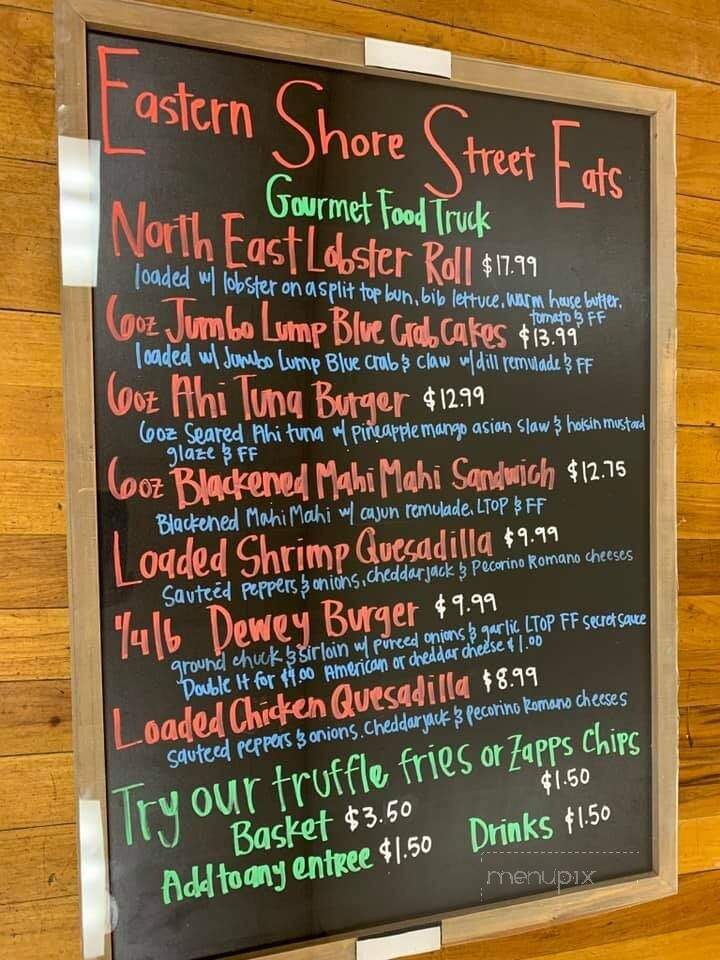 Eastern Shore Street Eats
Gourmet Food Truck
North East Lobster Roll $17.99
loaded w/ lobster on a split top bun, bib lettuce, warm house butter,
tomato & FF
6oz Jumbo Lump Blue Crab Cakes $13.99
loaded w/ Jumbo Lump Blue Crab & Claw w/ dill remulade & FF
6oz Ahi Tuna Burger $12.99
6oz Seared Ahi tuna w/ pineapple mango asian slaw & hoisin mustard
glaze & FF
6oz Blackened Mahi Mahi Sandwich $12.75
Blackened Mahi Mahi w/ cajun remulade, LTOP & FF
Loaded Shrimp Quesadilla $9.99
Sauteéd peppers & onions, cheddar jack & Pecorino Romano cheeses
1/4 lb Dewey Burger $9.99
ground chuck & sirloin w/ pureed onions & garlic LTOP FF secret sauce
Double It for $4.00 American or cheddar cheese $1.00
Loaded Chicken Quesadilla $8.99
sauteed peppers & onions, Cheddar jack & pecorino Romano cheeses
Try our truffle fries or Zapps Chips
Basket $3.50 $1.50
Add to any entree $1.50 Drinks $1.50
menupix